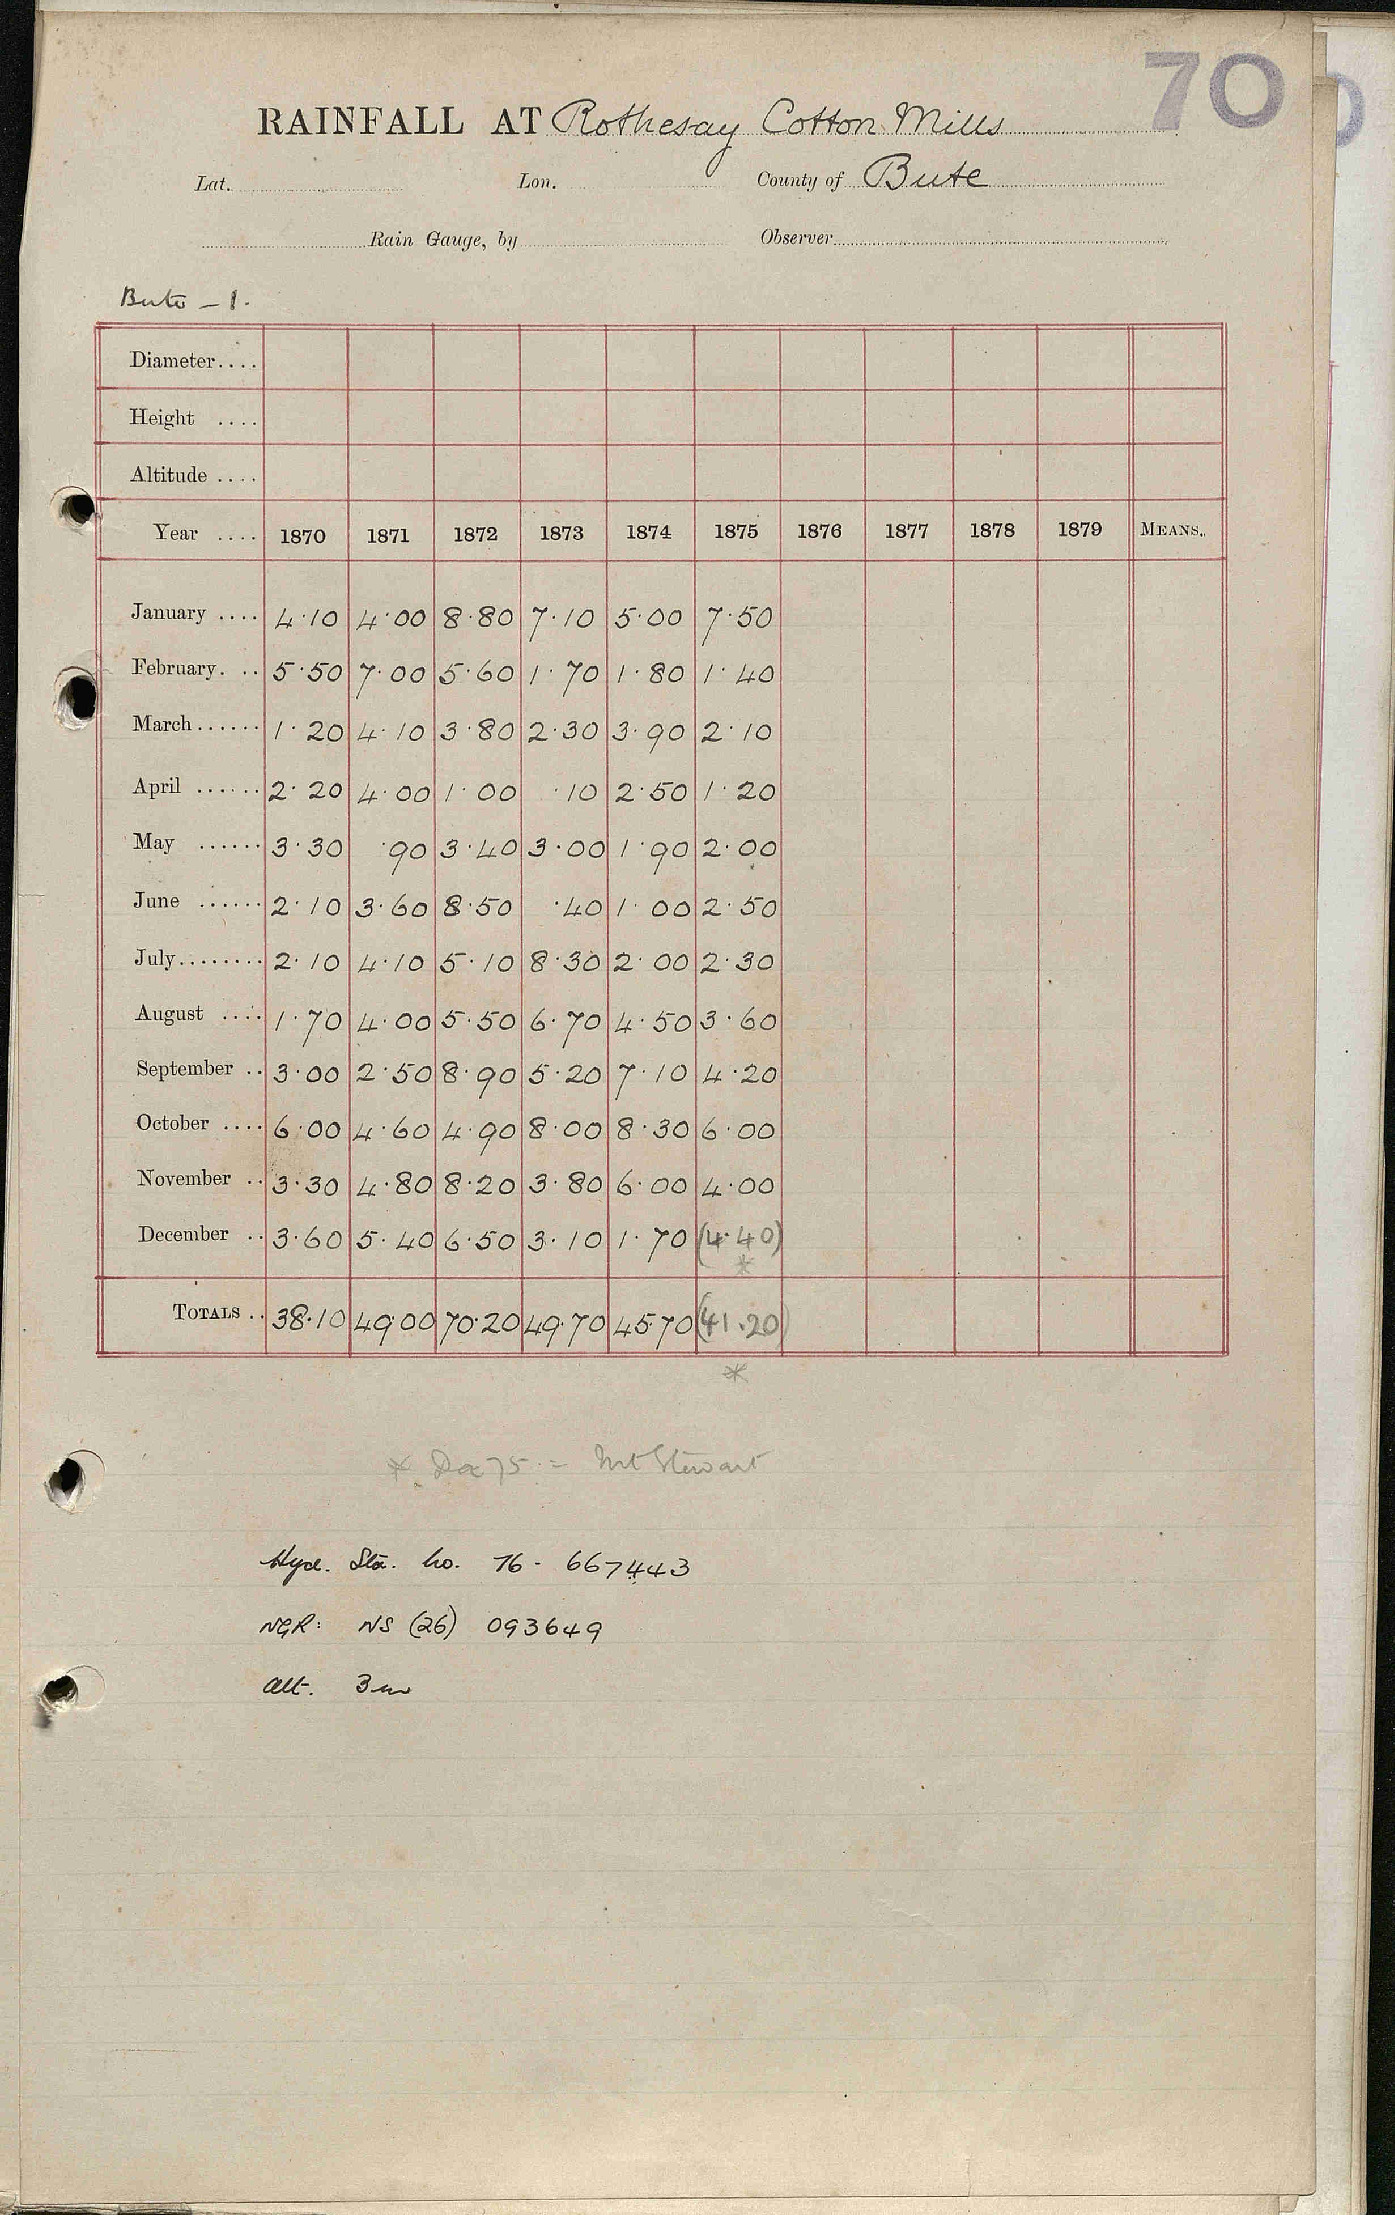 70
RAINFALL AT Rothesay Cotton Mills
Lat. Lon. County of Bute
Rain Gauge, by Observer
Bute - 1.
Diameter....
Height ....
Altitude ....
Year .... 1870 1871 1872 1873 1874 1875 1876 1877 1878 1879 MEANS.
January .... 4.10 4.00 8.80 7.10 5.00 7.50
February. .. 5.50 7.00 5.60 1.70 1.80 1.40
March...... 1.20 4.10 3.80 2.30 3.90 2.10
April ...... 2.20 4.00 1.00 .10 2.50 1.20
May ...... 3.30 .90 3.40 3.00 1.90 2.00
June ...... 2.10 3.60 8.50 .40 1.00 2.50
July........ 2.10 4.10 5.10 8.30 2.00 2.30
August .... 1.70 4.00 5.50 6.70 4.50 3.60
September .. 3.00 2.50 8.90 5.20 7.10 4.20
October .... 6.00 4.60 4.90 8.00 8.30 6.00
November .. 3.30 4.80 8.20 3.80 6.00 4.00
December .. 3.60 5.40 6.50 3.10 1.70 (4.40)
*
TOTALS .. 38.10 49.00 70.20 49.70 45.70 (41.20)
*
* Dec 75 = Mt Stewart
Hyd. Sta. No. 76 - 667443
NGR: NS (26) 093649
Alt. 3m